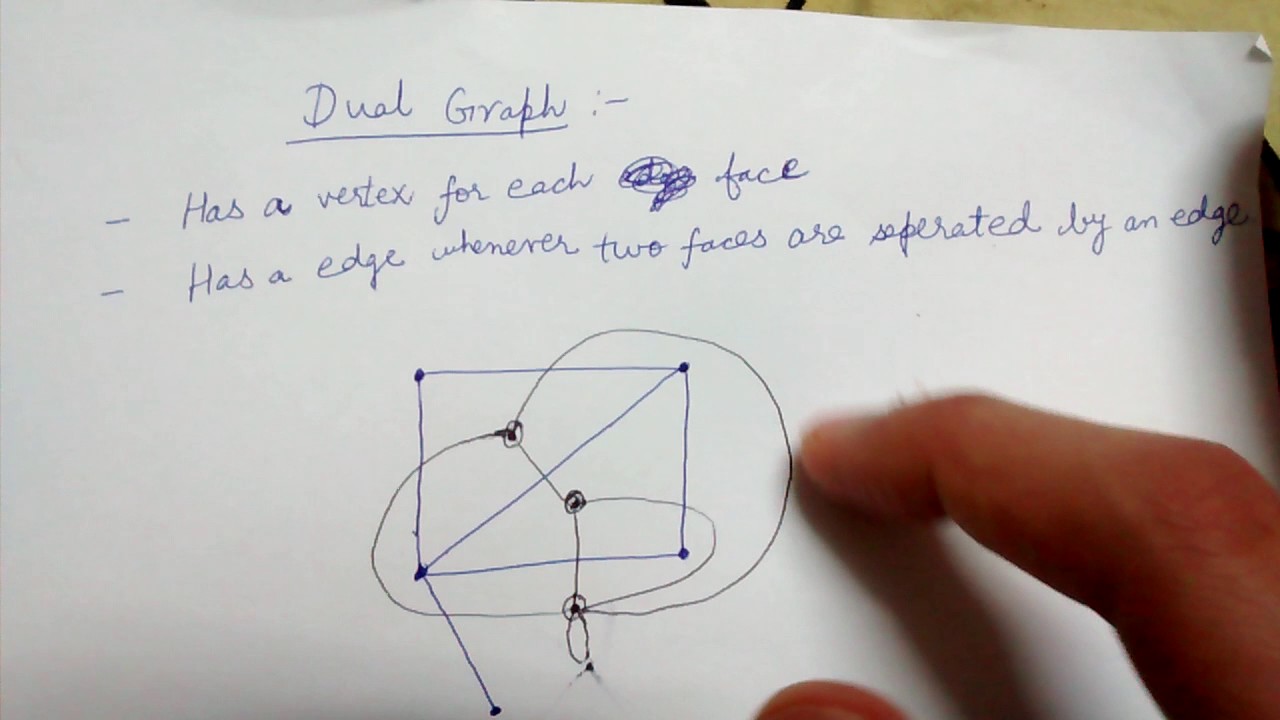 Dual Graph :-
- Has a vertex for each face
- Has a edge whenever two faces are seperated by an edge